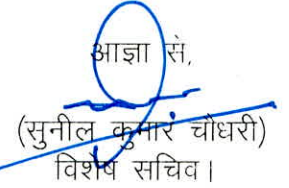 आज्ञा सं,
(सुनील कुमार चौधरी)
विशेष सचिव।